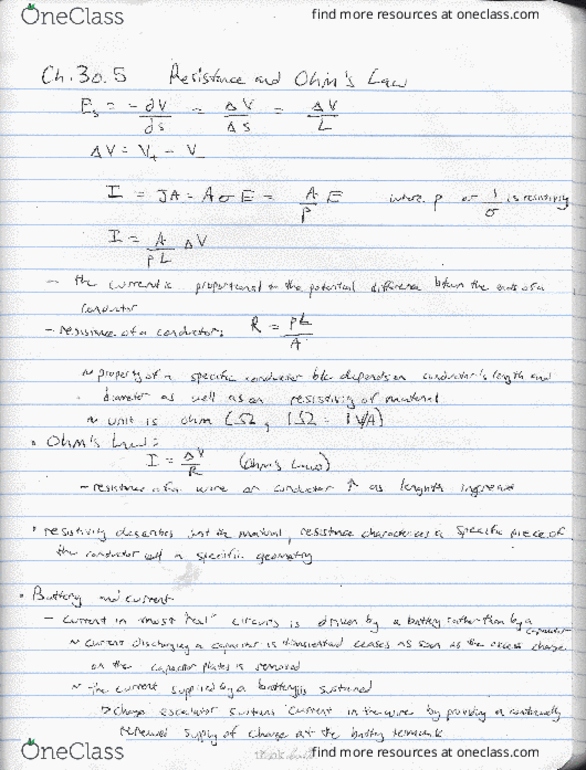 OneClass
find more resources at oneclass.com
Ch. 30.5 Resistance and Ohm's Law
Es = -dV/ds = ΔV/Δs = ΔV/L
ΔV = V+ - V-
I = JA = AσE = A/ρ E where ρ or 1/σ is resistivity
I = A/ρL ΔV
- the current is proportional to the potential difference b/wn the ends of a
conductor
- resistance of a conductor: R = ρL/A
~ property of a specific conductor b/c depends on conductor's length and
diameter as well as on resistivity of material
~ unit is ohm (Ω, 1Ω = 1V/A)
• Ohm's Law:
I = ΔV/R (Ohm's Law)
- resistance of a wire or conductor ↑ as length increase
• resistivity describes just the material, resistance characterizes a specific piece of
the conductor a specific geometry
• Battery and current
- current in most "real" circuits is driven by a battery rather than by a capacitor
~ current discharging a capacitor is transient and ceases as soon as the excess charge
on the capacitor plates is removed
~ the current supplied by a battery is sustained
→ charge escalator sustains current in the wire by providing a continually
renewed supply of charge at the battery terminals
OneClass
find more resources at oneclass.com